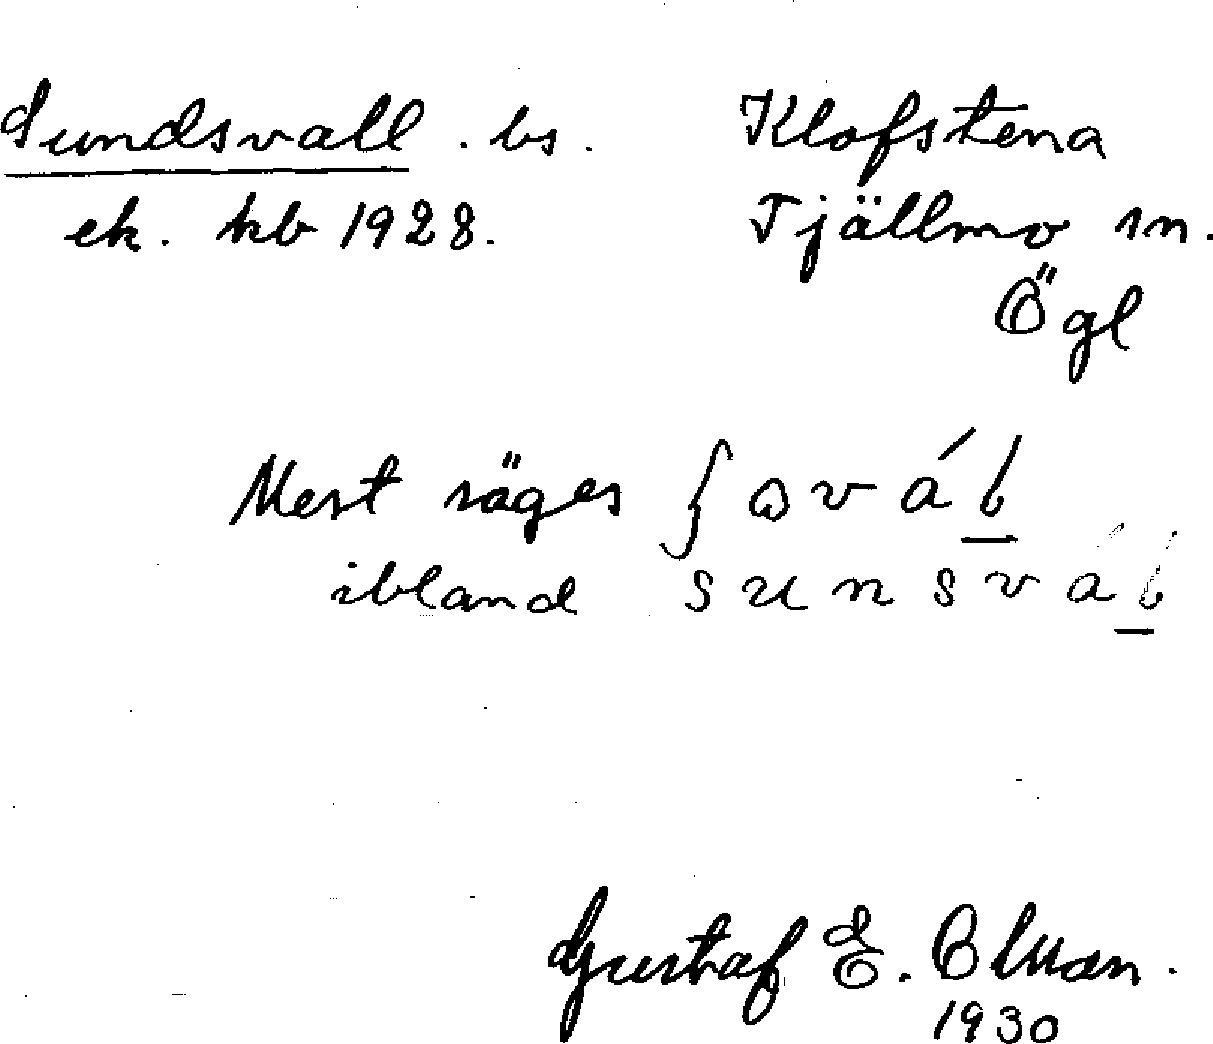 Sundsvall . bs. Klofstena
ek. kb 1928. Tjällmo sn.
Ögl
Mest säges
ibland sunsvál
Gustaf E.
1930